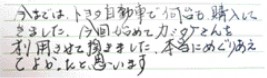 今までは、トヨタ自動車で何台も購入して
きました。今回初めてガリバーさんを
利用させて頂きました。本当にめぐりあえ
てよかったと思います